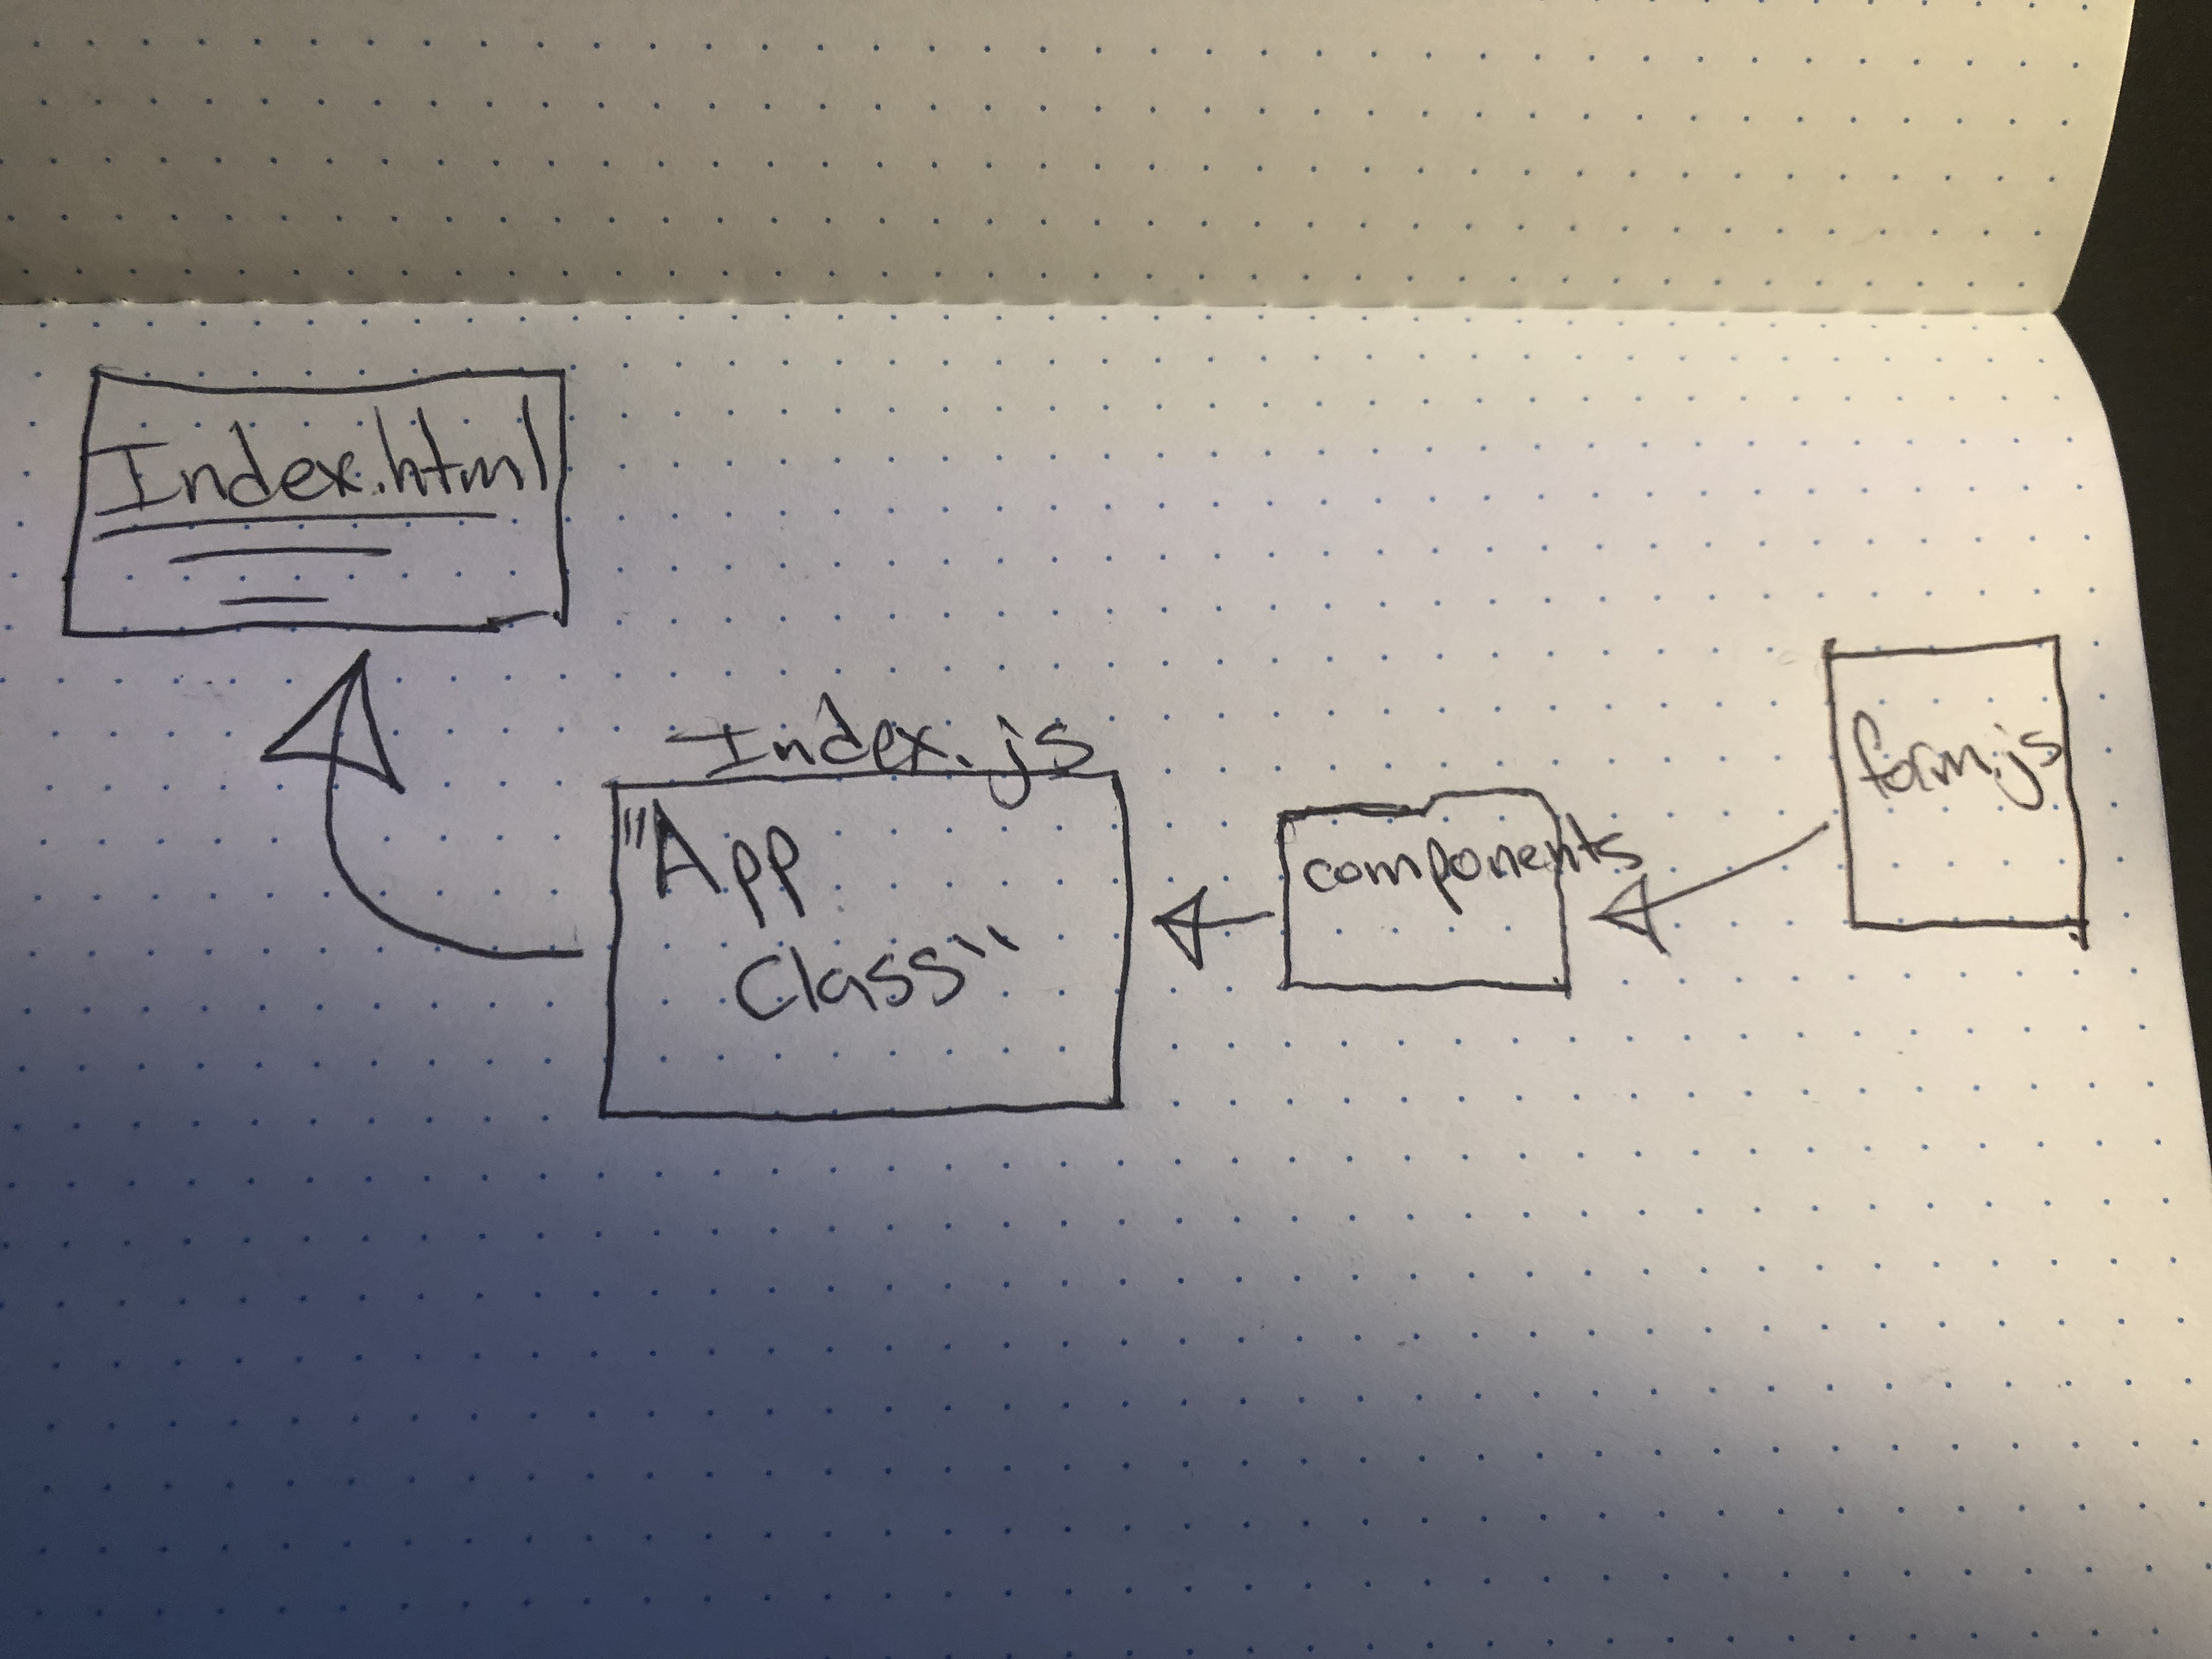 Index.html
Index.js
"App
Class"
components
form.js